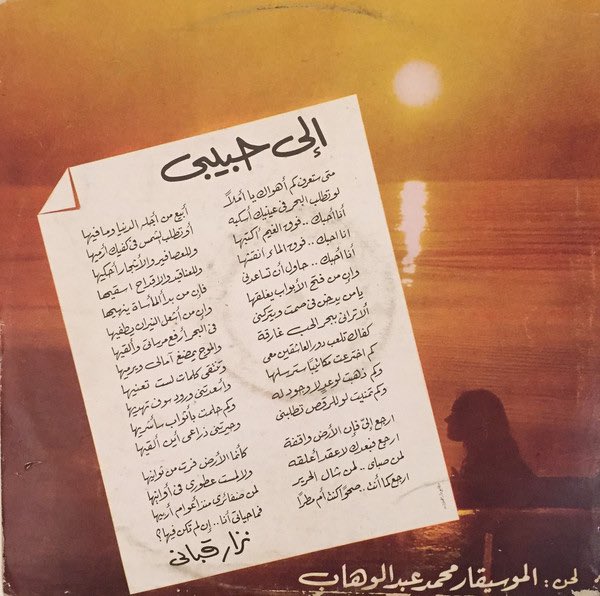 إلى حبيبي
متى ستعرف كم أهواك يا أملاً أبيع من أجله الدنيا وما فيها
لو تطلب البحر في عينيك أسكبه أو تطلب الشمس في كفيك أرميها
أنا أحبك .. فوق الغيم أكتبها وللعصافير والأشجار أحكيها
انا احبك .. فوق الماء أنقشها وللعناقيد والأقداح اسقيها
أنا أحبك .. حاول أن تساعدني فإن من بدأ المأساة ينهيها
وإن من فتح الأبواب يغلقها وإن من أشعل النيران يطفيها
يا من يدخن في صمت ويتركني في البحر أرفع مرساتي وألقيها
ألا تراني ببحر الحب غارقة والموج يمضغ آمالي ويرميها
كفاك تلعب دور العاشقين معي وتنتقي كلمات لست تعنيها
كم اخترعت مكاتيبا سترسلها وأسعدتني ورود سوف تهديها
وكم ذهبت لوعد لا وجود له وكم حلمت بأثواب سأشريها
وكم تمنيت لو للرقص تطلبني وحيرتني ذراعي أين ألقيها
ارجع إليّ فإن الأرض واقفة كأنما الأرض فرت من ثوانيها
ارجع فبعدك لا عقد أعلقه ولا لمست عطوري في أوانيها
لمن صباي .. لمن شال الحرير لمن ضفائري منذ أعوام أربيها
ارجع كما أنت .. صحوا كنت أم مطرا فما حياتي أنا .. إن لم تكن فيها؟
نزار قباني
لحن : الموسيقار محمد عبد الوهاب